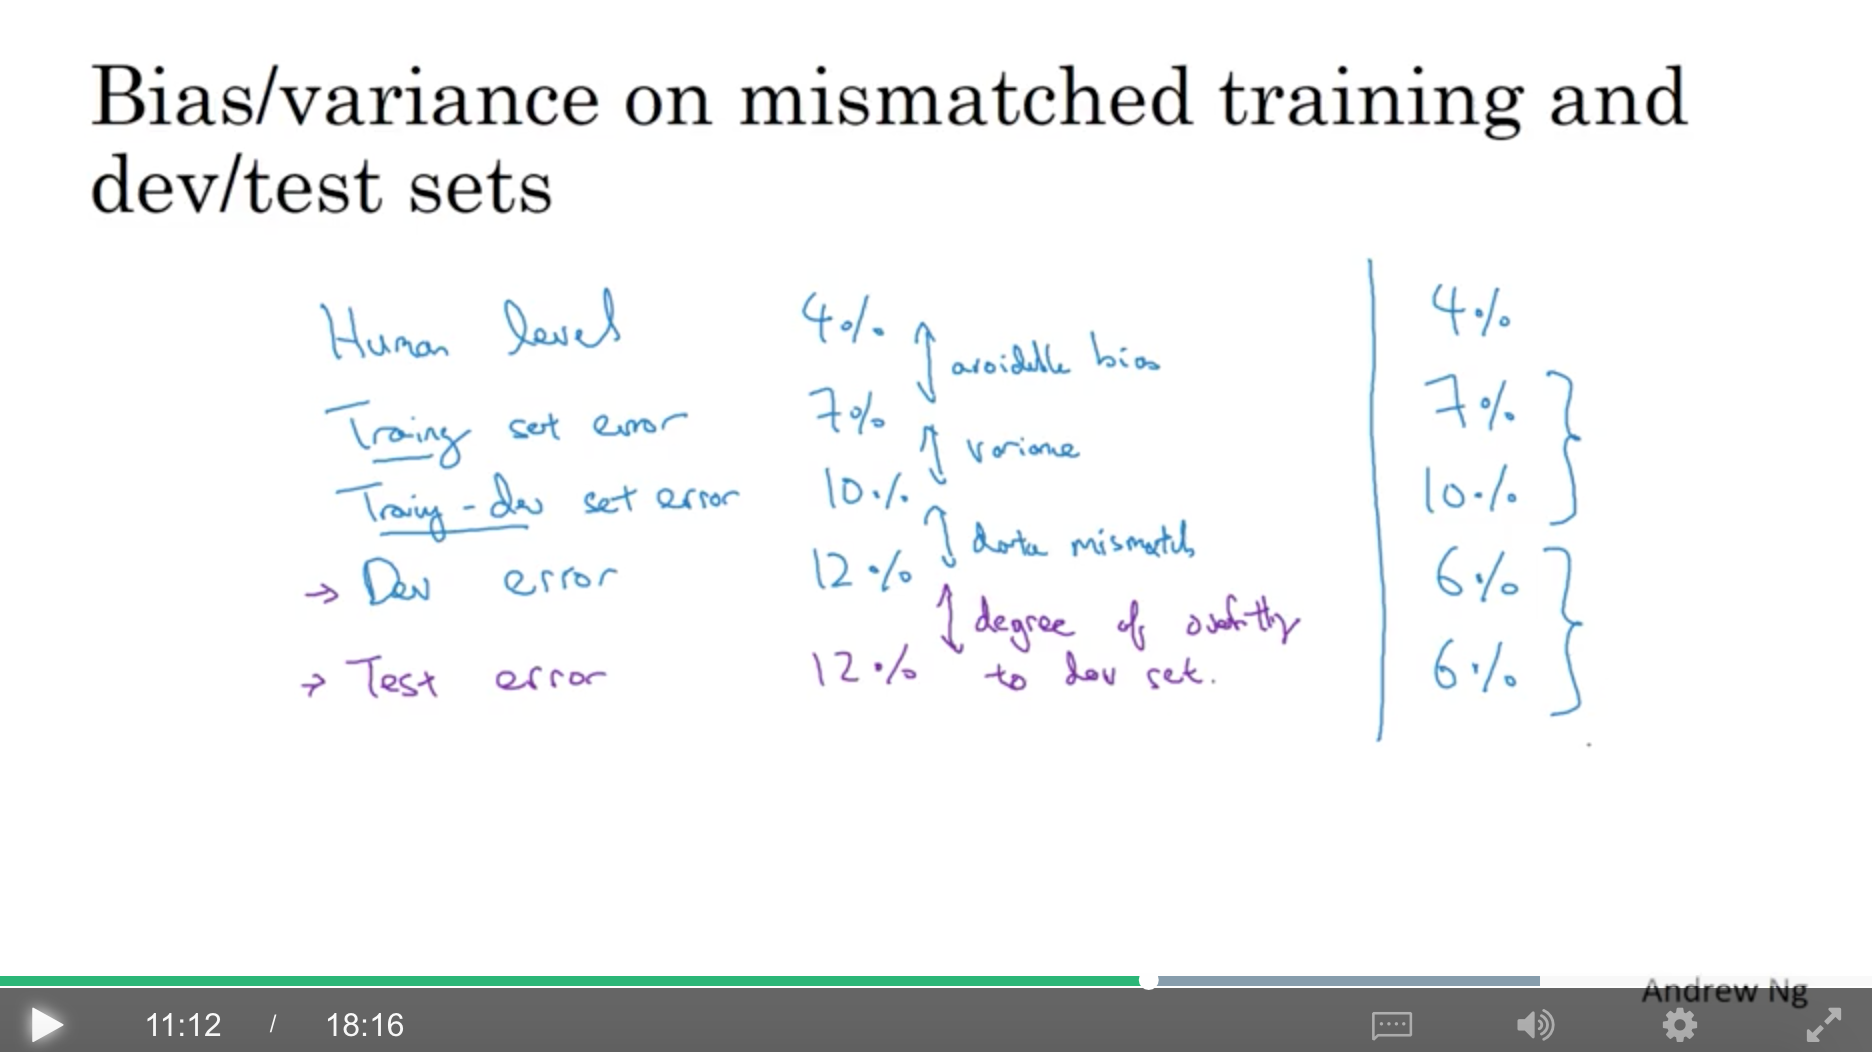 Bias/variance on mismatched training and
dev/test sets
Human level 4% 4%
avoidable bias
Training set error 7% 7%
variance
Training-dev set error 10% 10%
data mismatch
→ Dev error 12% 6%
degree of overfitting
→ Test error 12% to dev set. 6%
Andrew Ng
11:12 / 18:16